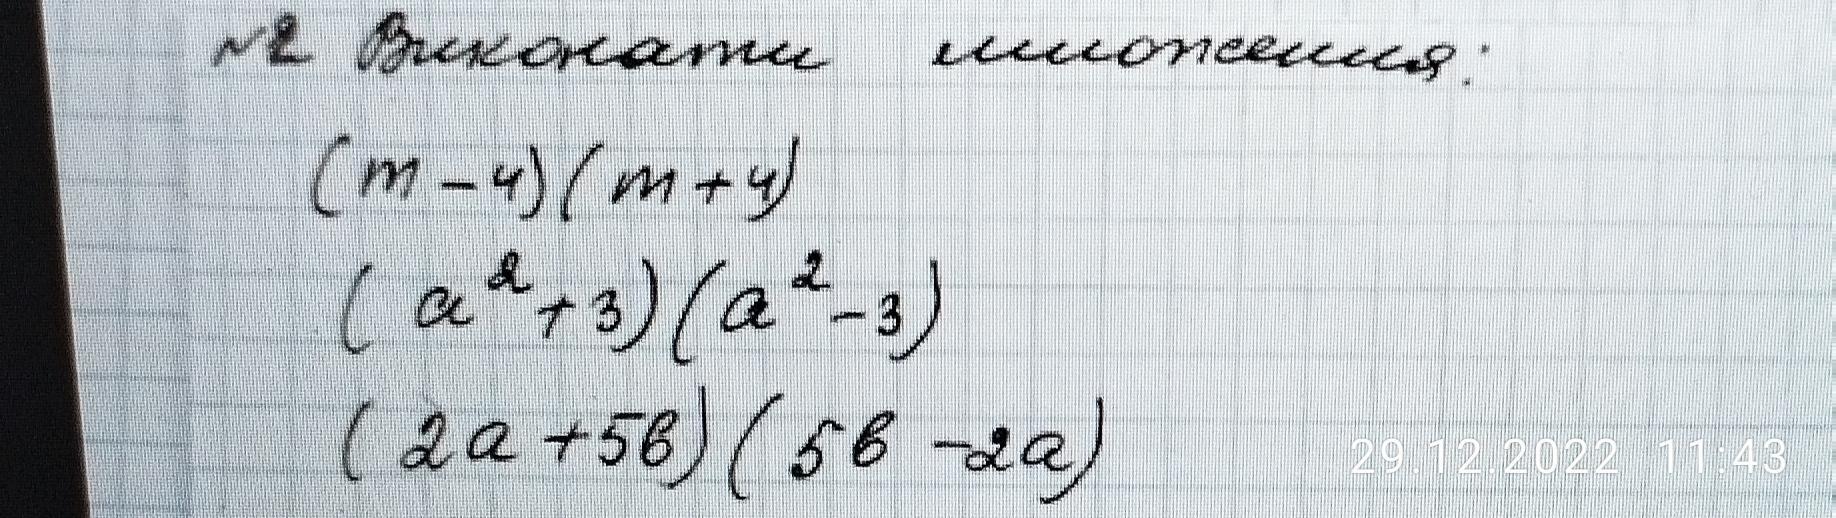 №2 Виконати множення:
(m-4)(m+4)
(a²+3)(a²-3)
(2a+5b)(5b-2a)
29.12.2022 11:43